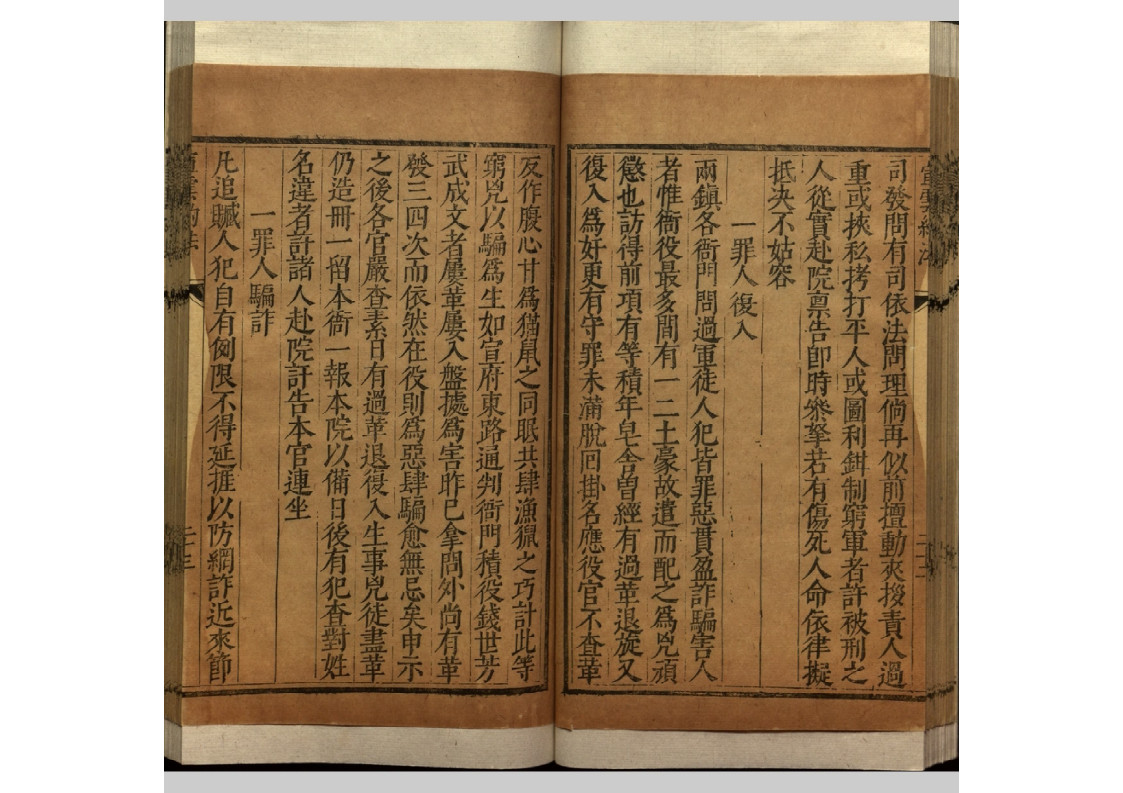 司發問有司依法問理倘再似前擅動夾拶責人過
重或挾私拷打平人或圖利鉗制窮軍者許被刑之
人從實赴院禀告即時叅拏若有傷死人命依律擬
抵決不姑容
一罪人復入
兩鎮各衙門問過軍徒人犯皆罪惡貫盈詐騙害人
者惟衙役最多間有一二土豪故遣而配之爲兇頑
懲也訪得前項有等積年皂舍曾經有過革退旋又
復入爲奸更有守罪未滿脫回掛名應役官不查革
反作腹心甘爲猫鼠之同眠共肆漁獵之巧計此等
窮兇以騙爲生如宣府東路通判衙門積役錢世芳
武成文者屢革屢入盤據爲害昨已拿問外尚有革
發三四次而依然在役則爲惡肆騙愈無忌矣申示
之後各官嚴查素日有過革退復入生事兇徒盡革
仍造冊一留本衙一報本院以備日後有犯查對姓
名違者許諸人赴院訐告本官連坐
一罪人騙詐
凡追贓人犯自有例限不得延捱以防網詐近來節